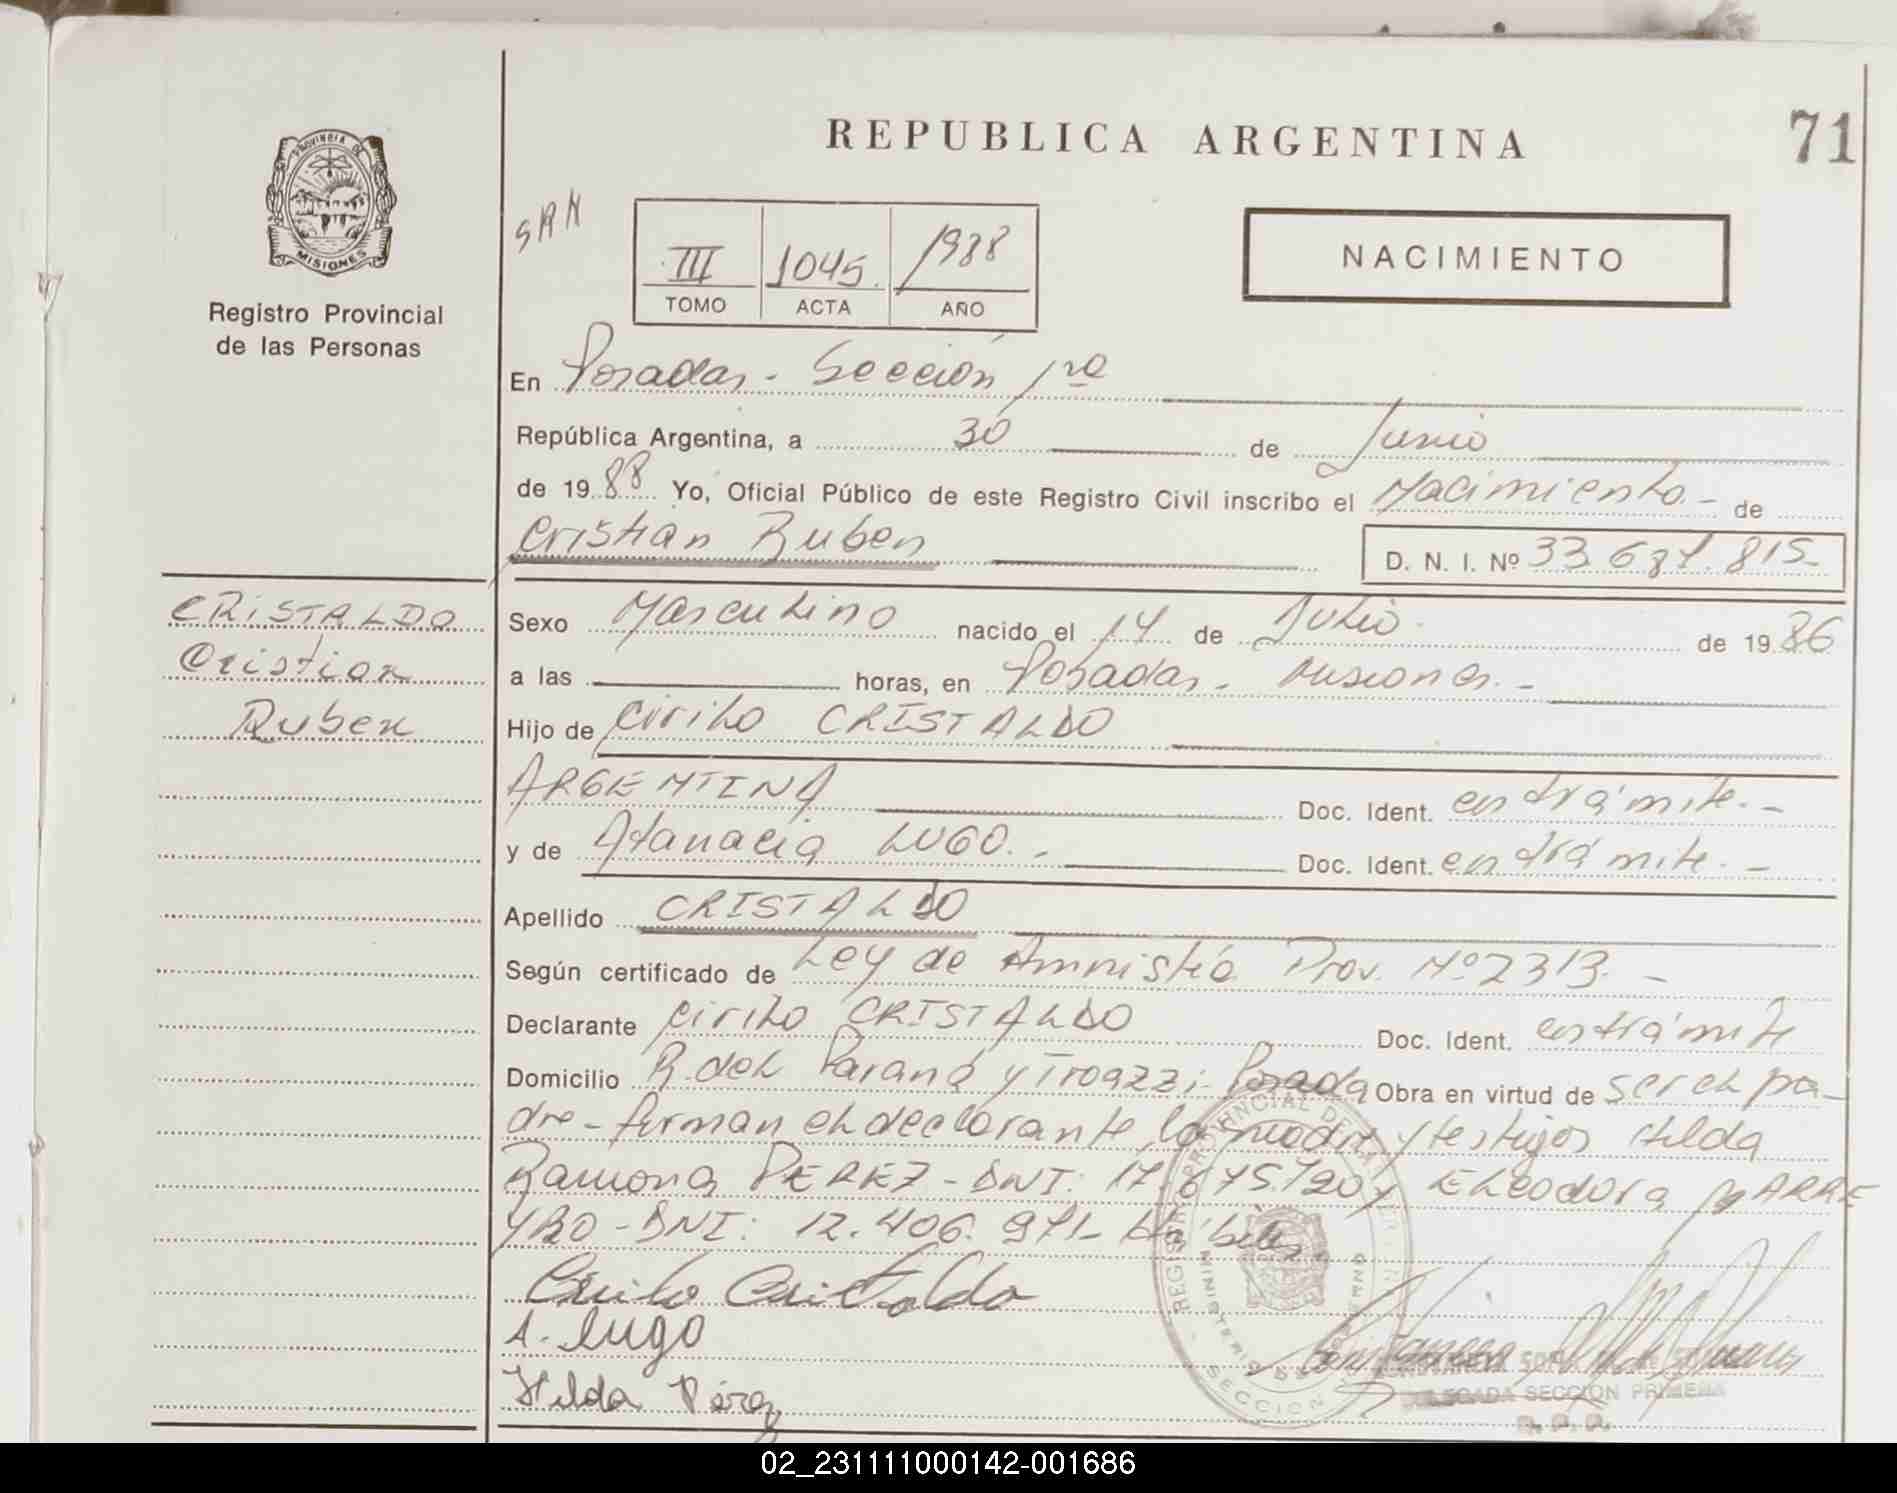 REPUBLICA ARGENTINA
71
PROVINCIA DE
MISIONES
Registro Provincial
de las Personas
III 1045. 1988
TOMO ACTA AÑO
NACIMIENTO
En Posadas - Sección 1ra
República Argentina, a 30 de Junio
de 1988 Yo, Oficial Público de este Registro Civil inscribo el Nacimiento - de
Cristian Ruben
D. N. I. Nº 33.687.815-
CRISTALDO
Cristian
Ruben
Sexo Masculino nacido el 14 de Julio de 1986
a las horas, en Posadas - Misiones. -
Hijo de Cirilo CRISTALDO
ARGENTINA Doc. Ident. en trámite. -
y de Atanacia LUGO. - Doc. Ident. en trámite. -
Apellido CRISTALDO
Según certificado de Ley de Amnistía Prov. Nº 2313. -
Declarante Cirilo CRISTALDO Doc. Ident. en trámite
Domicilio R. del Paraná y Troazzi - Posada Obra en virtud de ser el pa-
dre - firman el declarante, la madre y testigos Hilda
Ramona PEREZ - DNI: 17.675.120 y Eleodora MARRE
YRO - DNI: 12.406.971-
Cirilo Cristaldo
A. Lugo
Hilda Pérez
SECCION
DELEGADA SECCION PRIMERA
R. P. P.
02_231111000142-001686